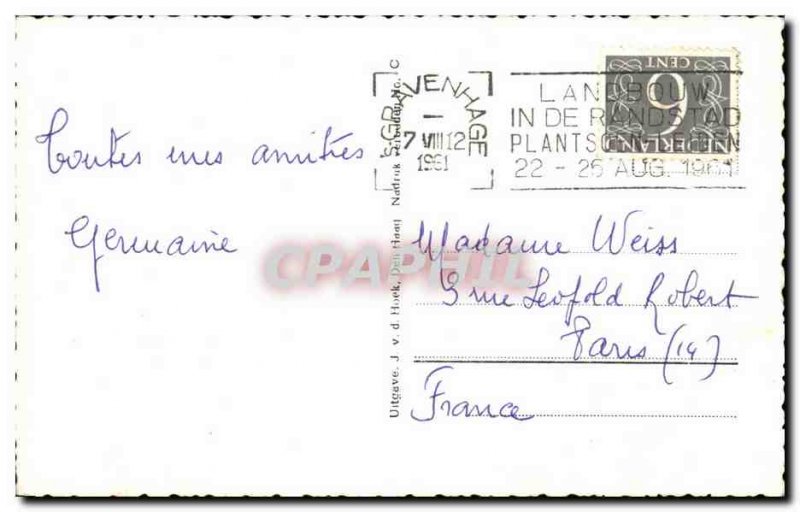 Toutes mes amitiés
Germaine
Uitgave. J. v. d. Hoek, Den Haag Nadruk verboden No. C
'S-GRAVENHAGE
7 VIII 12
1961
LANDBOUW
IN DE RANDSTAD
22 - 25 AUG. 1961
6
CENT
NEDERLAND
Madame Weiss
3 rue Léopold Robert
Paris (14)
France
CPAPHIL